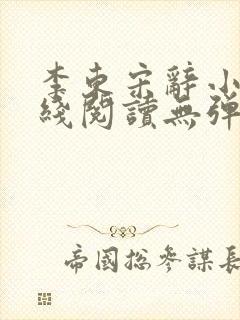 李東宋辭小
綫閱讀無彈
帝國總參謀長